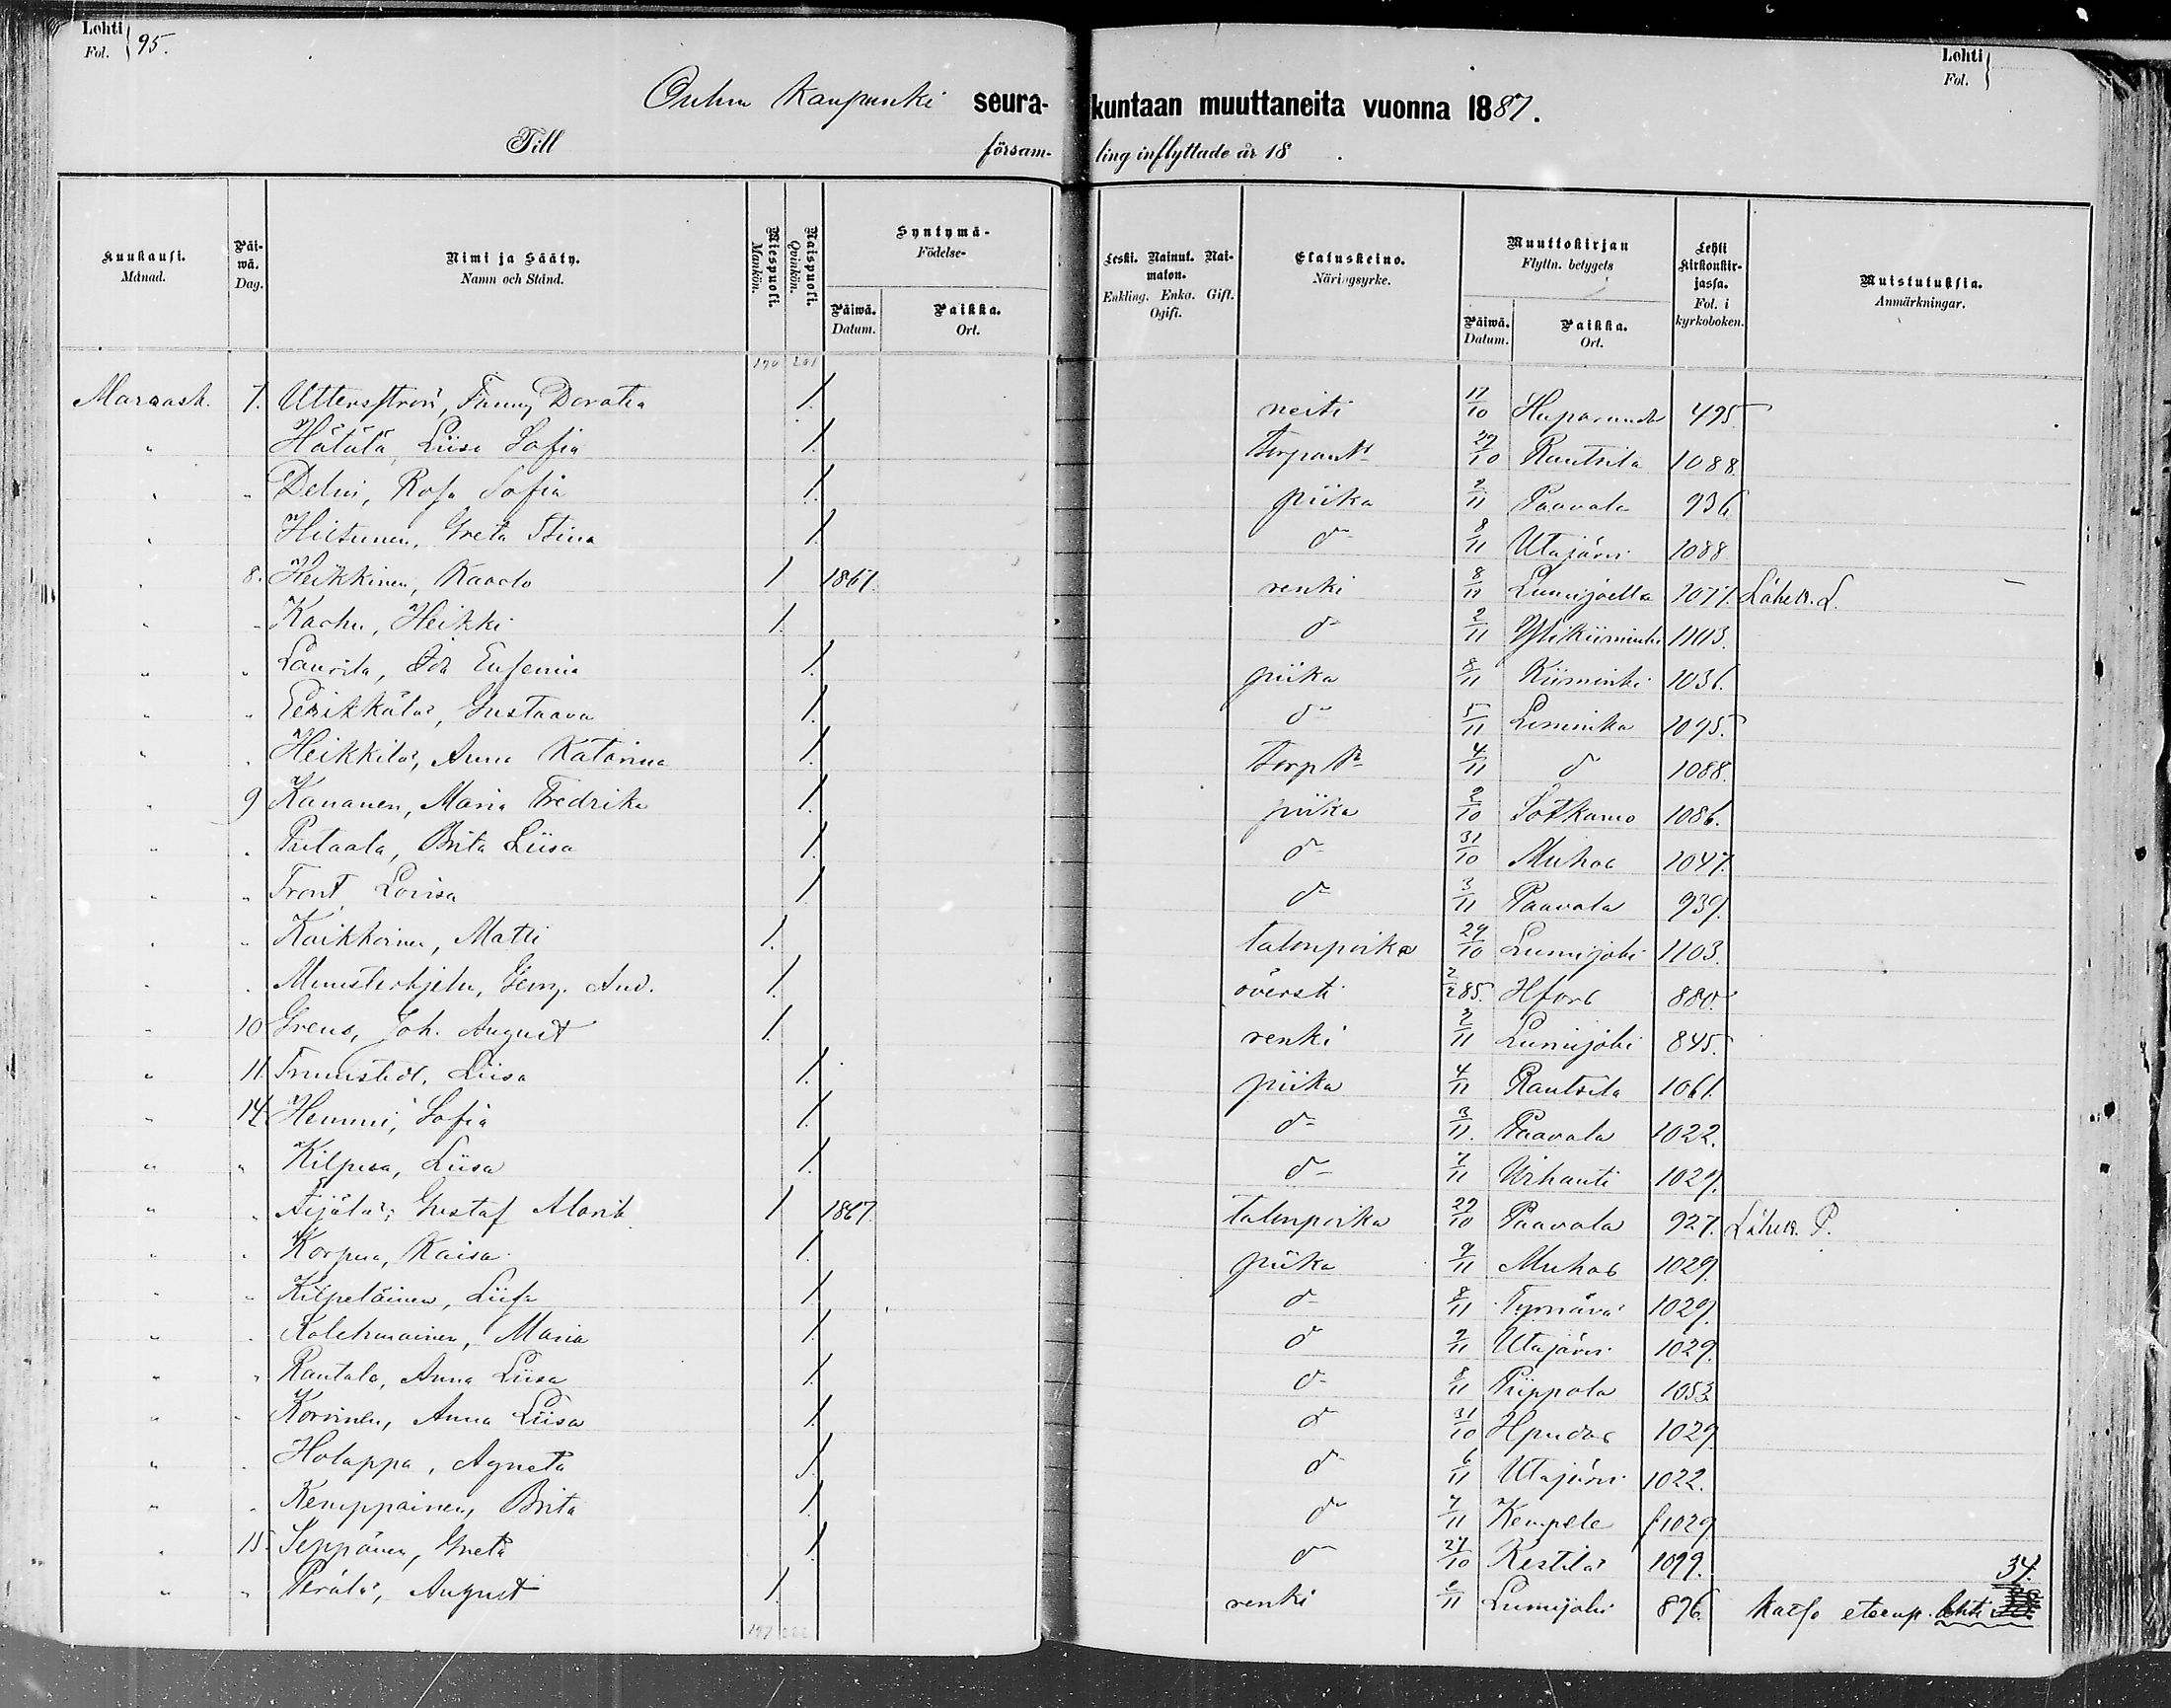 Lohti
Fol. 95.
Lohti
Fol.
Oulun Kaupunki seura- kuntaan muuttaneita vuonna 1887.
Till försam- ling inflyttade år 18 .
Kuukausi. Månad.
Päiwä. Dag.
Nimi ja Sääty. Namn och Stånd.
Miespuoli. Mankön.
Naispuoli. Qvinkön.
Syntymä- Födelse-
Päiwä. Datum.
Paikka. Ort.
Leski. Nainut. Naimaton.
Enkling. Enka. Gift. Ogift.
Elatuskeino. Näringsyrke.
Muuttokirjan Flyttn. betygets
Päiwä. Datum.
Paikka. Ort.
Lehti Kirkonkirjassa. Fol. i kyrkoboken.
Muistutuksia. Anmärkningar.
190 201
Marrask. 7. Utterström, Fanny Dorotea 1. neiti 17/10 Haparanda 495
" Hätälä, Liisa Sofia 1. torpantr 29/10 Rantsila 1088.
" " Delin, Rosa Sofia 1. piika 2/11 Paavola 936.
" Hiltunen, Greta Stina 1. do 8/11 Utajärvi 1088
" 8. Heikkinen, Kaarlo 1 1867. renki 8/11 Lumijoella 1077. Lähet. L.
" " Karhu, Heikki 1. do 2/11 Ylikiiminki 1103.
" " Laurila, Ida Eufemia 1. piika 8/11 Kiiminki 1036.
" " Eerikkälä, Gustaava 1. do 5/11 Liminka 1095.
" " Heikkilä, Anna Katarina 1. torp tr 4/11 do 1088.
" 9 Kananen, Maria Fredrika 1. piika 2/10 Sotkamo 1086.
" " Putaala, Brita Liisa 1. do 31/10 Muhos 1047.
" " Front, Lovisa 1. do 3/11 Paavola 939.
" " Karkkoinen, Matti 1. talonpoika 29/10 Lumijoki 1103.
" " Munsterhjelm, Georg. And. 1. översti 2/2 85. Hfors 880.
" 10 Grens, Joh. August 1. renki 2/11 Lumijoki 845.
" 11. Trumstedt, Liisa 1. piika 4/11 Rantsila 1061.
" 14. Hemmi, Sofia 1. do 3/11. Paavola 1022.
" " Kilpua, Liisa 1. do 7/11 Vihanti 1029.
" " Äijälä, Gustaf Alarik 1 1867. talonpoika 29/10 Paavola 927. Lähet. P.
" " Korpua, Kaisa 1. piika 9/11 Muhos 1029.
" " Kilpeläinen, Liisa 1. do 8/11 Tyrnävä 1029.
" " Kolehmainen, Maria 1. do 9/11 Utajärvi 1029.
" " Rautala, Anna Liisa 1. do 8/11 Piippola 1053.
" " Korvinen, Anna Liisa 1. do 31/10 Hpudas 1029.
" " Holappa, Agneta 1. do 6/11 Utajärvi 1022.
" " Kemppainen, Brita 1. do 7/11 Kempele 1029.
" 15. Seppänen, Greta 1. do 27/10 Kestilä 1099.
" " Perälä, August 1. renki 6/11 Lumijoki 896. Katso eteenp. lehti 34.
197 222